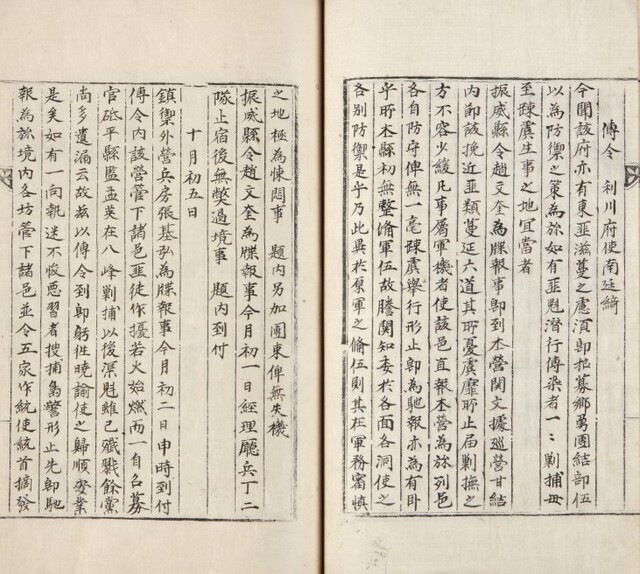 傳令 利川府使南廷綺
今聞該府亦有東匪滋蔓之慮須卽招募鄕勇團結部伍
以爲防禦之策爲旀如有匪魁潛行傳染者一ミ剿捕毋
至踈虞生事之地宜當者
振威縣令趙文奎爲牒報事卽到本營関文據巡營甘結
內節該挽近匪類蔓延六道其所憂虞靡所止届剿撫之
方不容少緩凡事屬軍機者使該邑直報本營爲旀列邑
各自防守俾無一毫踈虞擧行形止卽爲馳報亦爲有卧
乎所本縣初無整脩軍伍故謄関知委於各面各洞使之
各別防禦是乎乃此異於原軍之脩伍則其在軍務審愼
之地極爲悚悶事 題內另加團束俾無失機
振威縣令趙文奎爲牒報事今月初一日經理廳兵丁二
隊止宿後無獘過境事 題內到付
十月初五日
鎭禦外營兵房張基弘爲牒報事今月初二日申時到付
傳令內該營管下諸邑匪徒作擾若火始燃而一自召募
官砥平縣監孟英在八峰剿捕以後渠魁雖已殲戮餘黨
尙多遺漏云故玆以傳令到卽躬徃曉諭使之歸順安業
是矣如有一向執迷不悛惡習者搜捕梟警形止先卽馳
報爲旀境內各坊管下諸邑並令五家作統使統首摘發